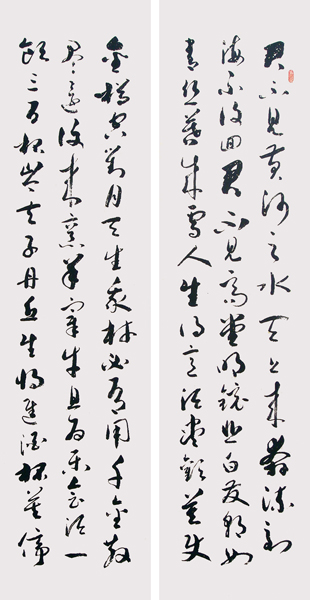 君不見黃河之水天上来奔流到
海不復回君不見高堂明鏡悲白髮朝如
青絲暮成雪人生得意須盡歡莫使
金樽空對月天生我材必有用千金散
盡還復来烹羊宰牛且為樂會須一
飲三百杯岑夫子丹丘生將進酒杯莫停